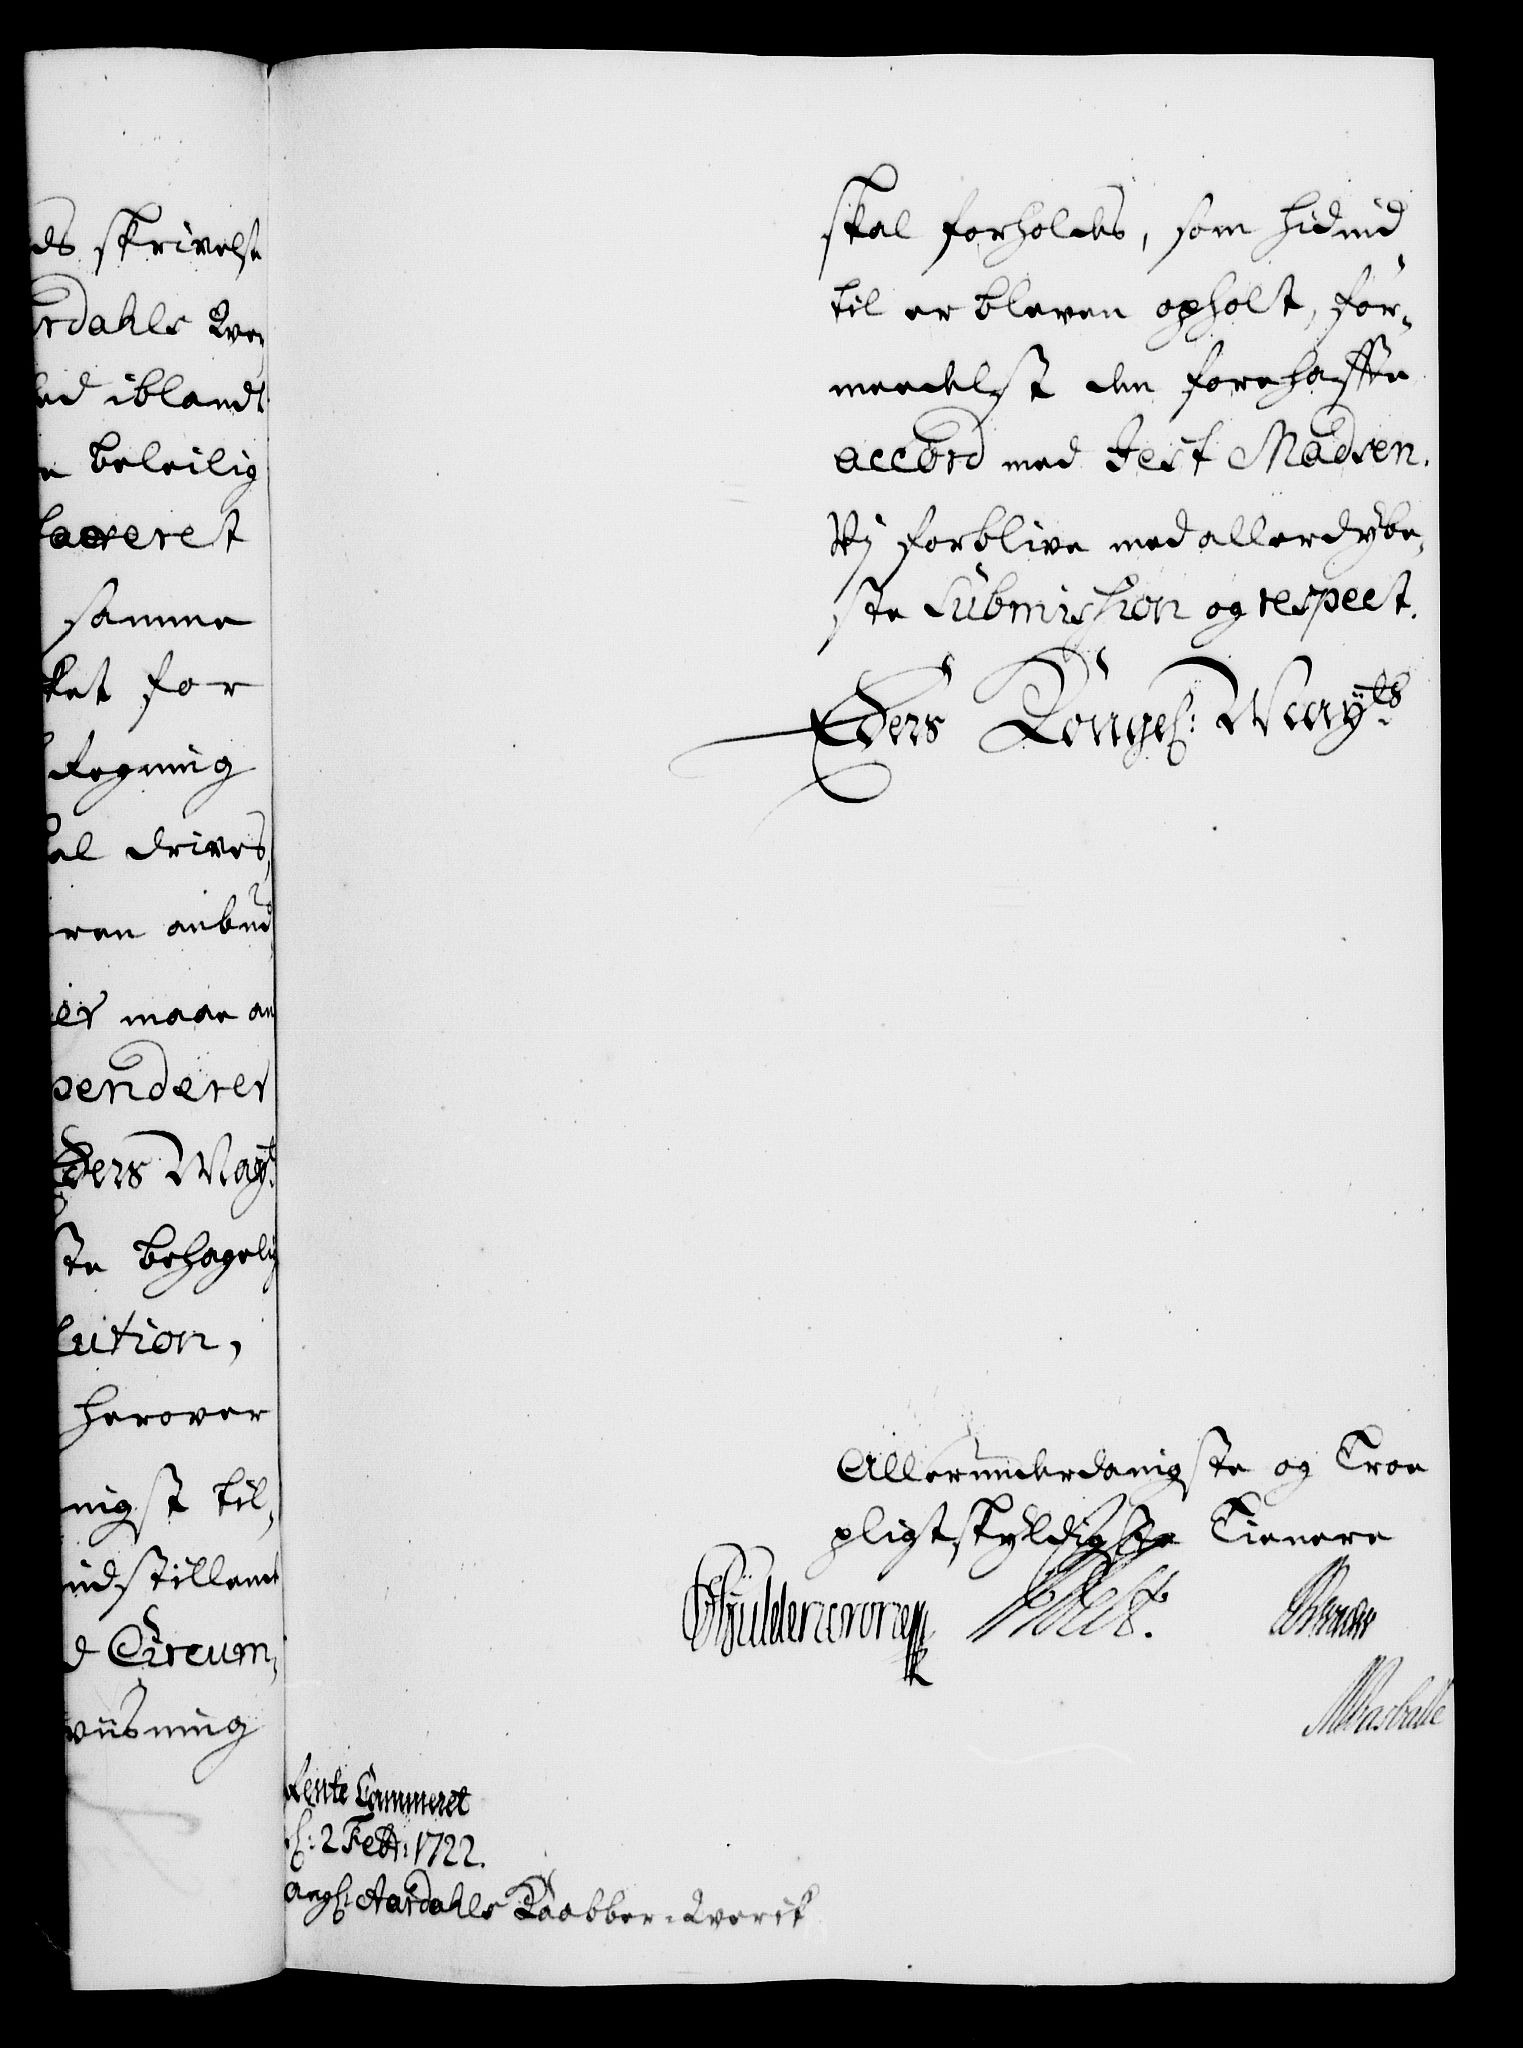 ds skrivelse
rdahls Kver
ed iblandt
e beleilig
laereret
samme
ket for
Regning
al drives,
ren anbud
er maae an
penderer
Eders May.t
ste behagelig
lution,
herover
nigst til-
indstillend
d Circum-
viisning
skal forholdes, som hidind
til er bleven opholt, for-
meedelst den forehaffte
accord med Jest Madsen.
Vij forblive med allerdÿbe-
ste Submission og respect.
Eders Kongel: Maÿ.ts
Allerunderdanigste og Troe
pligtskÿldigste Tienere
Gÿldencrone
Rente Cammeret
d: 2 Febr: 1722.
ang: Aardahls Kaabber-Kverck